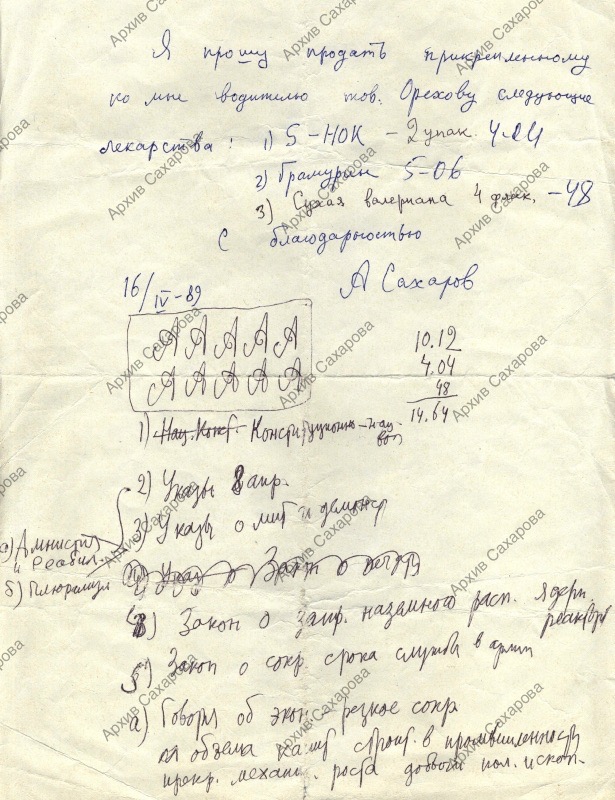 Я прошу продать прикрепленному
ко мне водителю тов. Орехову следующие
лекарства: 1) 5-НОК – 2 упак. 4.04
2) Грамурин 5-06
3) Сухая валериана 4 флак. – 48
С благодарностью
А Сахаров
16/IV-89
А А А А А
А А А А А
10.12
4.04
48
14.64
1) Нац. Конст. Конституционно-нац
2) Указы 8 апр.
3) Указы о мит и демонстр
а) Амнистия
и Реабил.
б) Плюрализм
4) Закон о запр. наземного расп. ядерн. реакторов
5) Закон о сокр. срока службы в армии
а) Говоря об экон – резкое сокр.
объема капит строит. в промышленности
прекр. механич. роста добычи пол. ископ.
Архив Сахарова